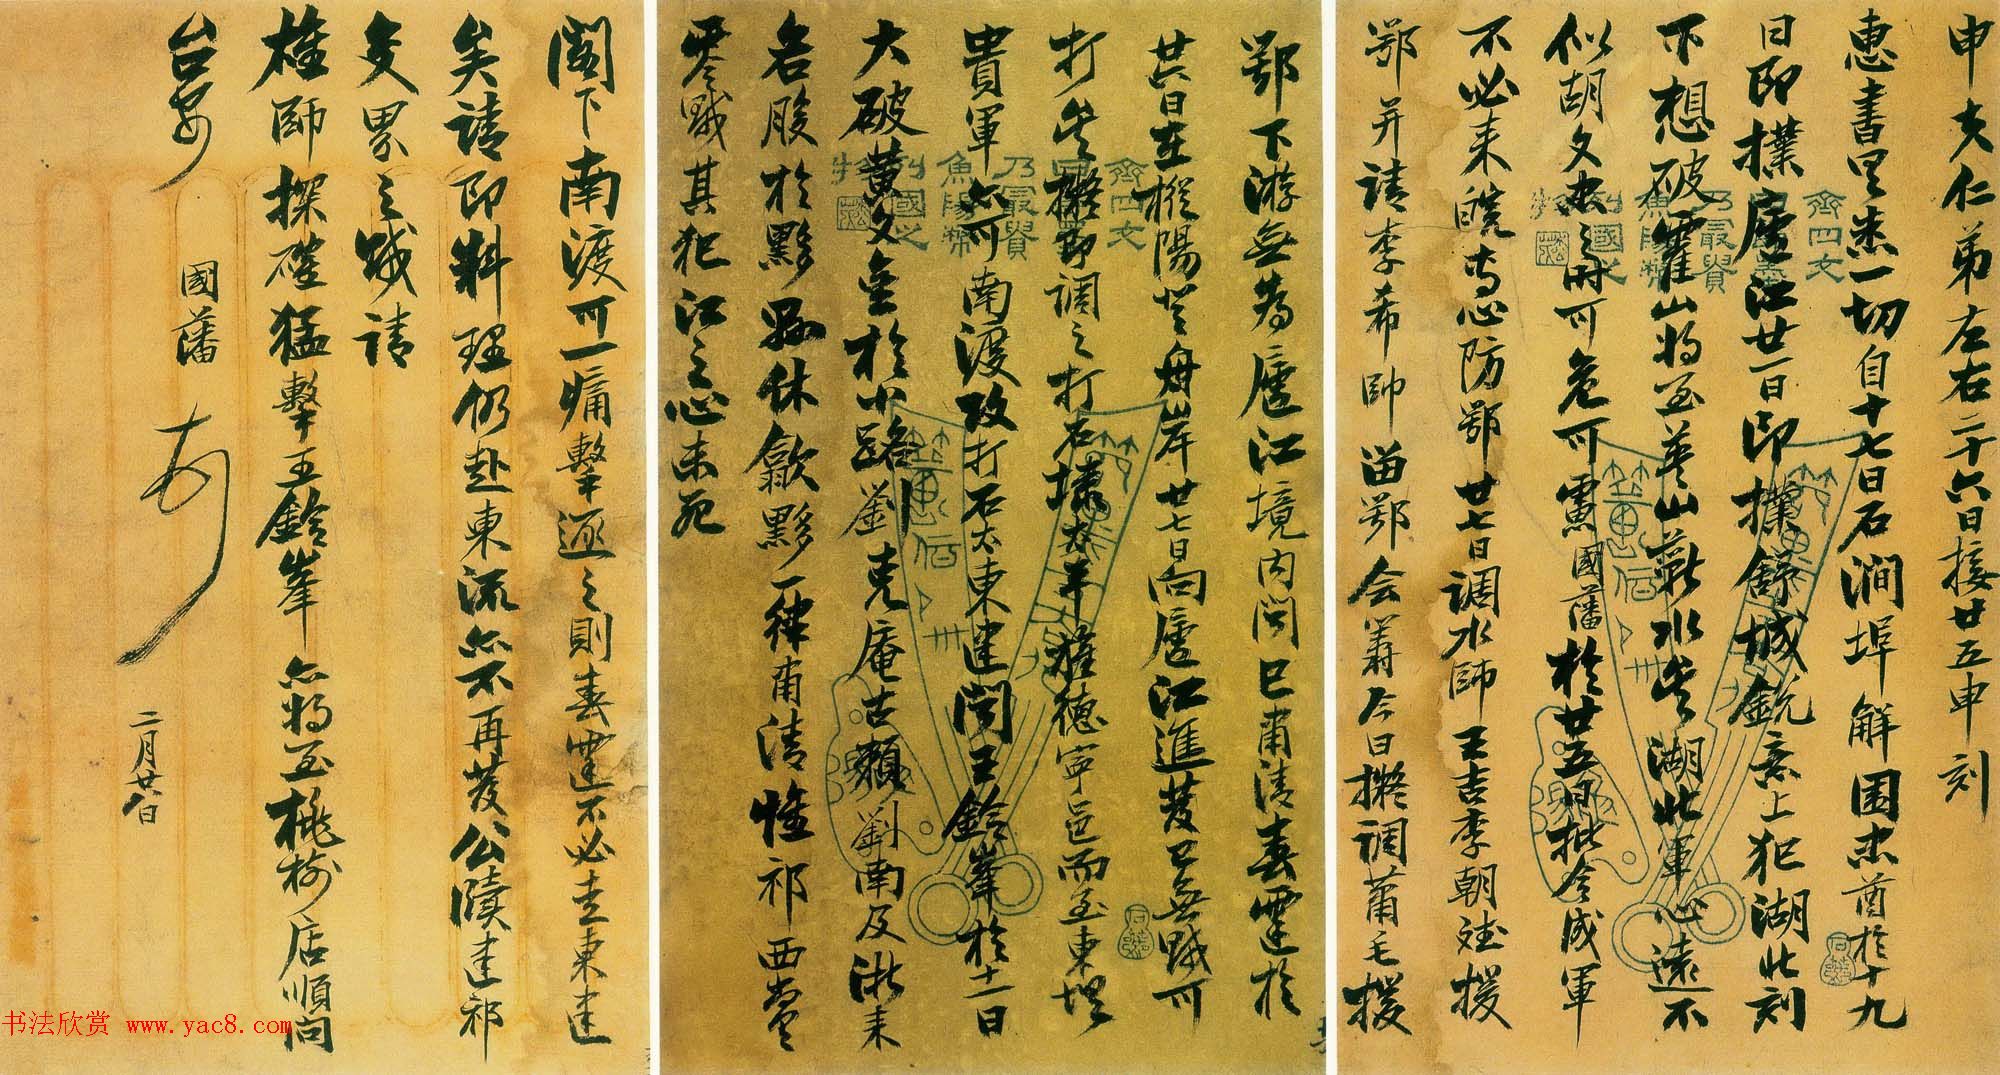 申夫仁弟左右二十六日接廿五申刻
惠書具悉一切自十七日石澗埠解圍忠酋於十九
日即撲廬江廿一日即撲舒城銳意上犯湖北刻
下想破霍山將至英山蘄水矣湖北軍心遠不
似胡文忠之時可危可慮國藩於廿五日批令成軍
不必來皖專心防鄂廿七日調水師王吉李朝斌援
鄂并請李希帥留鄂會籌今日擬調蕭毛援
鄂下游無為廬江境內聞已肅清春霆於
廿六日在樅陽登舟岸廿七日向廬江進發已無賊可
打矣擬即調之打石埭太平旌德寧邑而至東壩
貴軍亦可南渡攻打石太東建聞王鈐峯於十一日
大破黃文金於小路劉克庵古賴劉南及浙來
各股於黟縣休歙黟一律肅清惟祁西尚
零賊其犯江之心未死
閣下南渡可一痛擊逐之則春霆不必走東建
矣請即料理仍赴東流亦不再發公牘建祁
交界之賊請
雄師探確猛擊王鈐峯亦將至桃樹店順問
台安
國藩
二月廿八日
齊四文
乃㝡貲
魚陽幣
列國之
書法欣赏 www.yac8.com